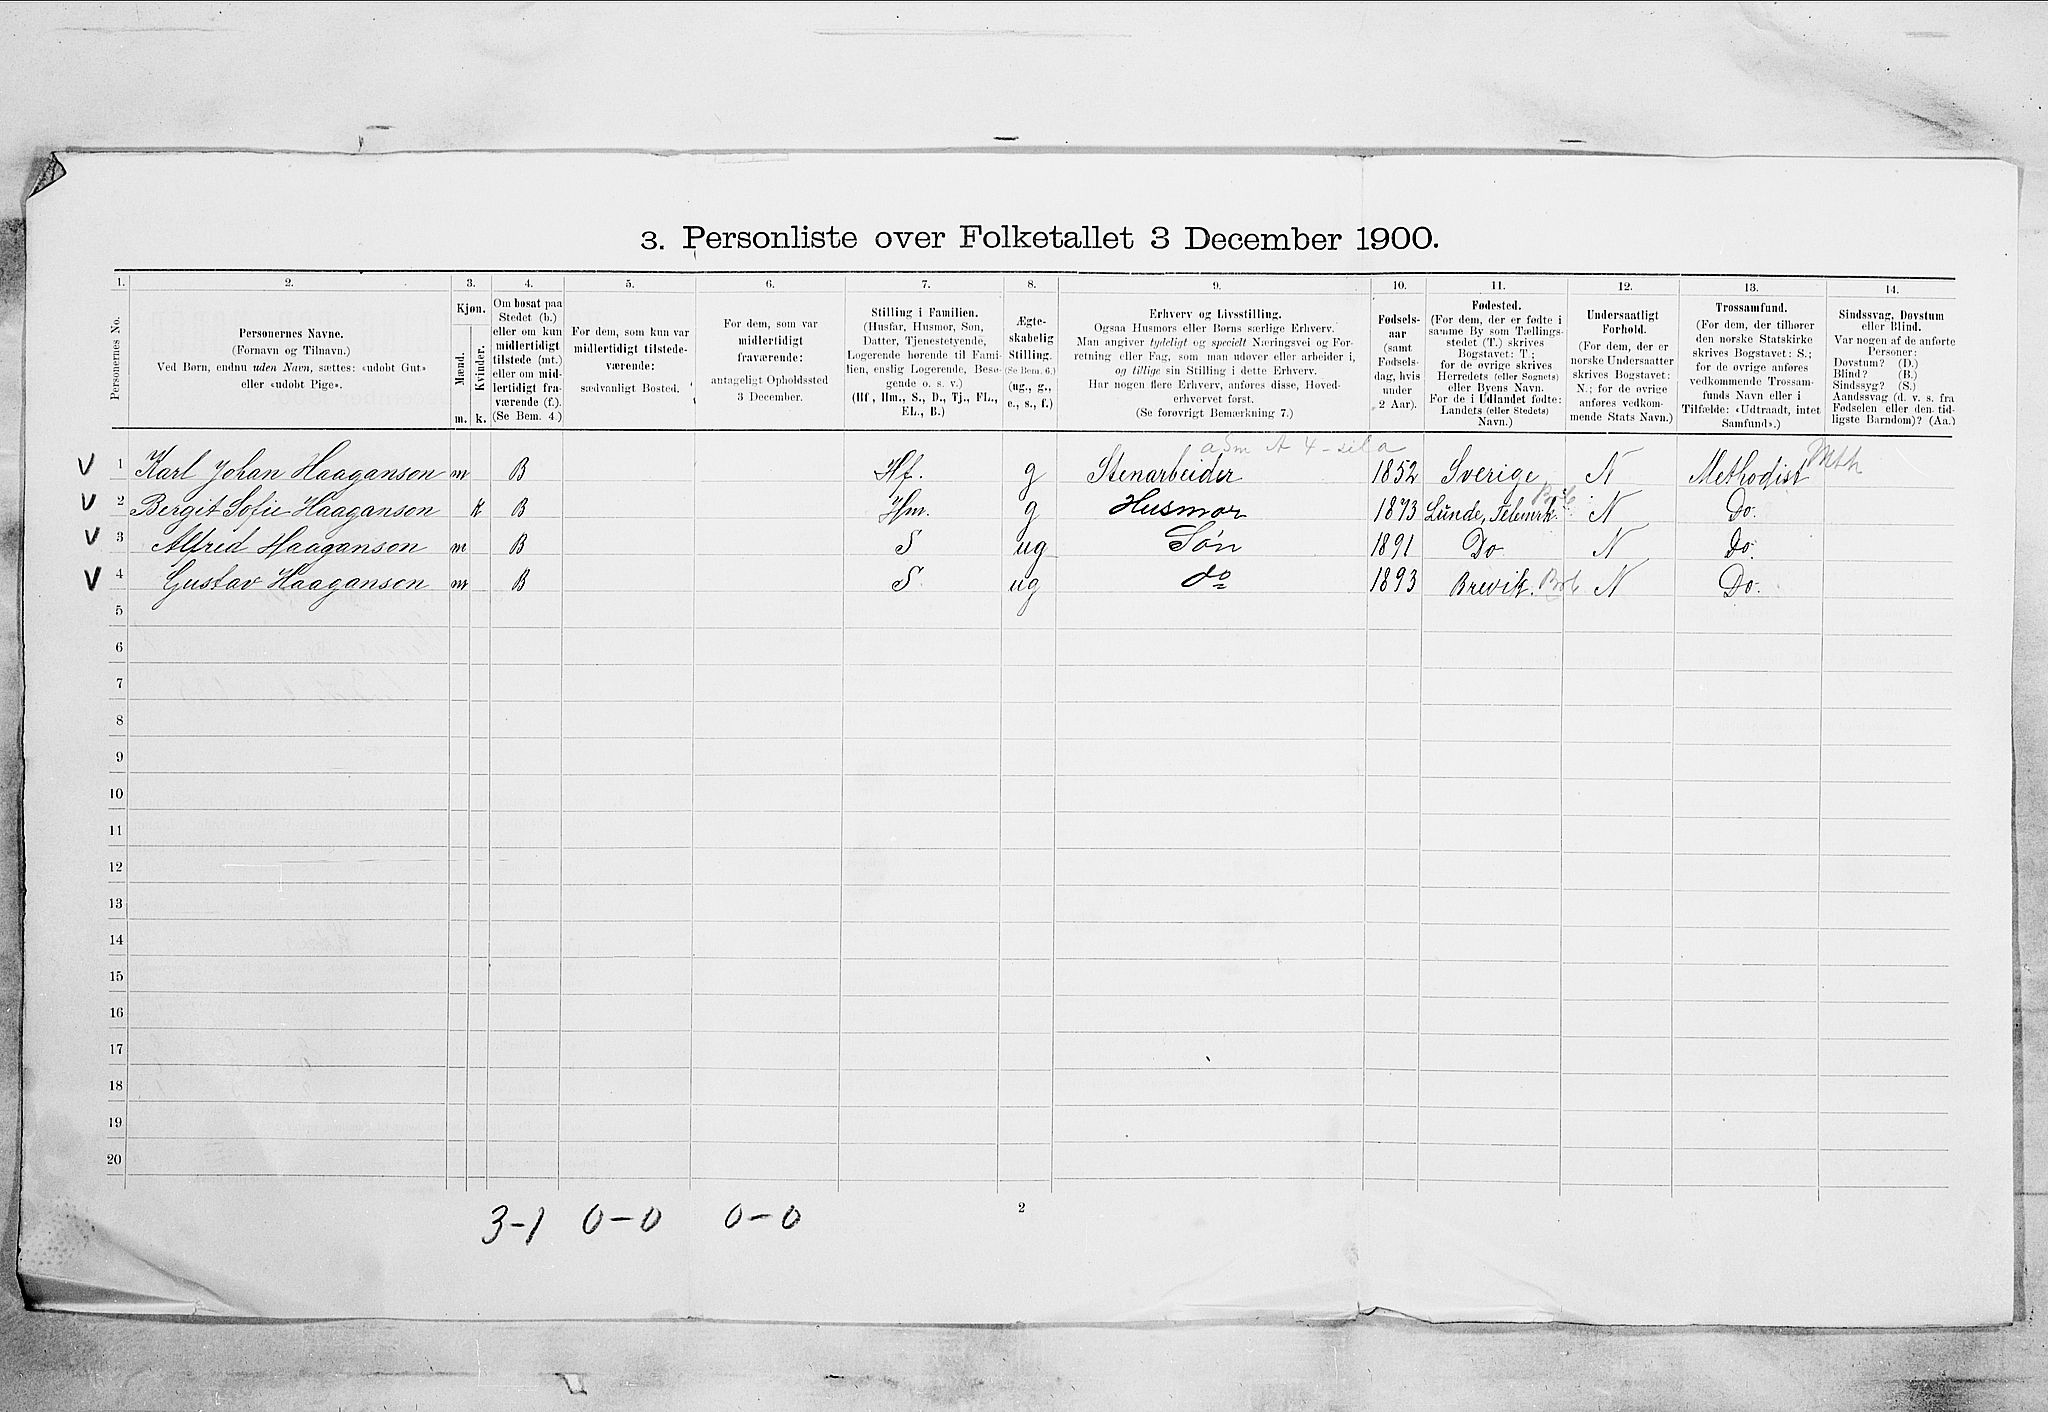 3. Personliste over Folketallet 3 December 1900.
1. 2. 3. 4. 5. 6. 7. 8. 9. 10. 11. 12. 13. 14.
Personernes No.
Personernes Navne.
(Fornavn og Tilnavn.)
Ved Børn, endnu uden Navn, sættes: «udobt Gut»
eller «udobt Pige».
Kjøn.
Mænd.
Kvinder.
m. k.
Om bosat paa
Stedet (b.)
eller om kun
midlertidigt
tilstede (mt.)
eller om mid-
lertidigt fra-
værende (f.)
(Se Bem. 4.)
For dem, som kun var
midlertidigt tilstede-
værende:
sædvanligt Bosted.
For dem, som var
midlertidigt
fraværende:
antageligt Opholdssted
3 December.
Stilling i Familien.
(Husfar, Husmor, Søn,
Datter, Tjenestetyende,
Logerende hørende til Fami-
lien, enslig Logerende, Besø-
gende o. s. v.)
(Hf., Hm., S., D., Tj., FL.,
EL., B.)
Ægte-
skabelig
Stilling.
(Se Bem. 6.)
(ug., g.,
e., s., f.)
Erhverv og Livsstilling.
Ogsaa Husmors eller Børns særlige Erhverv.
Man angiver tydeligt og specielt Næringsvei og For-
retning eller Fag, som man udøver eller arbeider i,
og tillige sin Stilling i dette Erhverv.
Har nogen flere Erhverv, anføres disse, Hoved-
erhvervet først.
(Se forøvrigt Bemærkning 7.)
Fødsels-
aar
(samt
Fødsels-
dag, hvis
under
2 Aar).
Fødested.
(For dem, der er fødte i
samme By som Tællings-
stedet (T.) skrives
Bogstavet: T;
for de øvrige skrives
Herredets (eller Sognets)
eller Byens Navn.
For de i Udlandet fødte:
Landets (eller Stedets)
Navn.)
Undersaatligt
Forhold.
(For dem, der er
norske Undersaatter
skrives Bogstavet:
N.; for de øvrige
anføres vedkom-
mende Stats Navn.)
Trossamfund.
(For dem, der tilhører
den norske Statskirke
skrives Bogstavet: S.;
for de øvrige anføres
vedkommende Trossam-
funds Navn eller i
Tilfælde: «Udtraadt, intet
Samfund».)
Sindssvag, Døvstum
eller Blind.
Var nogen af de anførte
Personer:
Døvstum? (D.)
Blind? (B.)
Sindssyg? (S.)
Aandssvag (d. v. s. fra
Fødselen eller den tid-
ligste Barndom)? (Aa.)
V 1 Karl Johan Haaganson m B Hf. g Stenarbeider 1852 Sverige N Methodist Meth
V 2 Bergit Sofie Haaganson k B Hm. g Husmor 1873 Lunde, Telemrk. N Do.
V 3 Alfred Haaganson m B S ug Søn 1891 Do N Do.
V 4 Gustav Haaganson m B S. ug do 1893 Brevik. N Do.
5
6
7
8
9
10
11
12
13
14
15
16
17
18
19
20
3-1 0-0 0-0
2